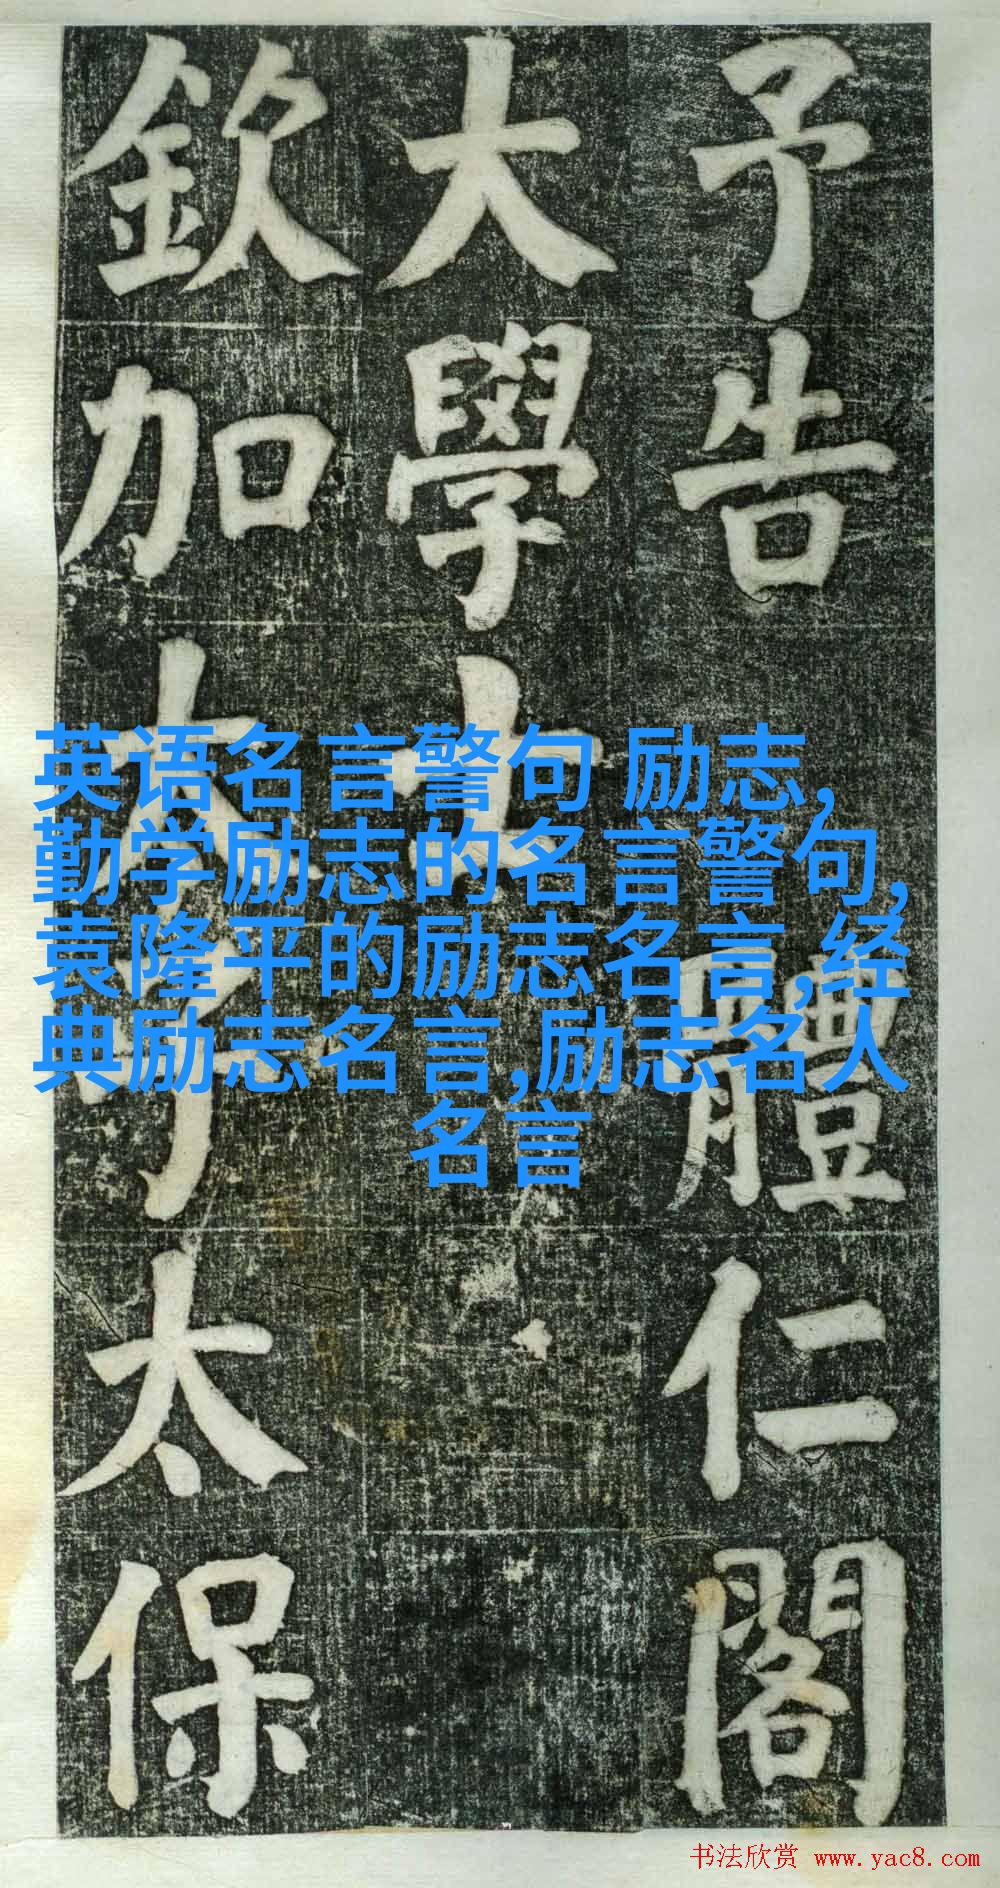 予告體仁閣
大學士
欽加太子太保
英语名言警句 励志,
勤学励志的名言警句,
袁隆平的励志名言,经
典励志名言,励志名人
名言
书法欣赏 www.yac8.com